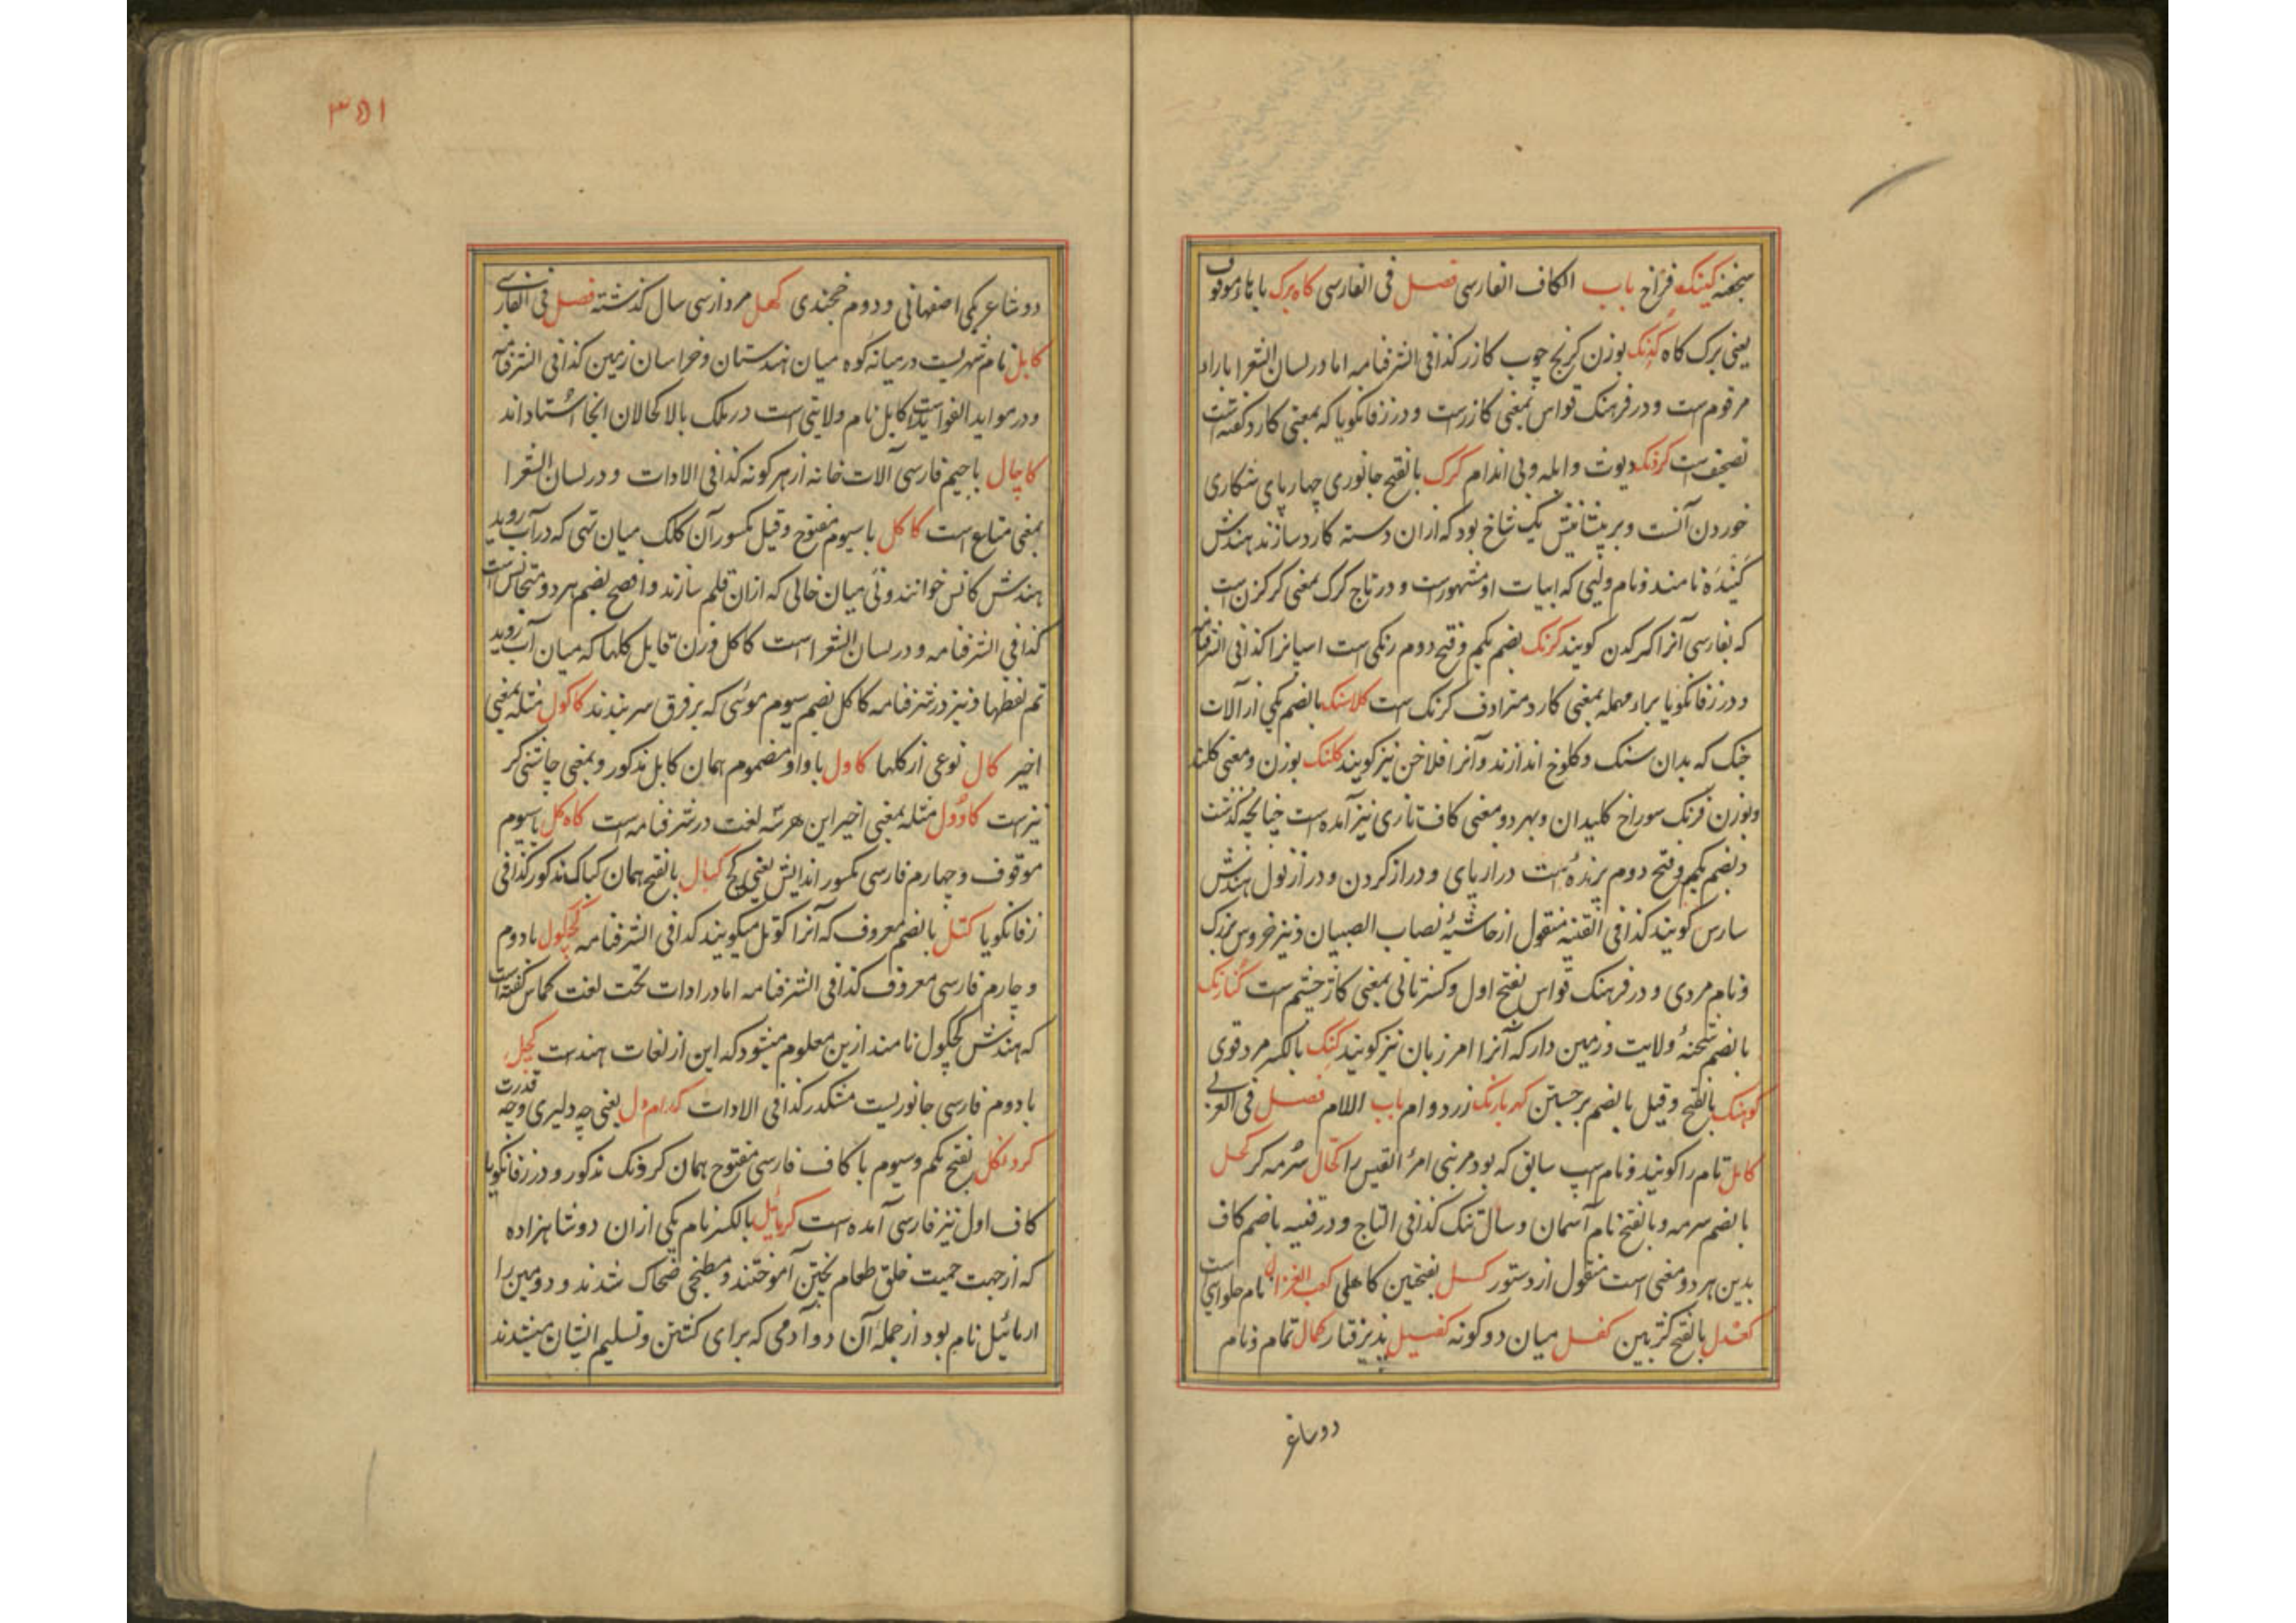 کینک فراخ باب الکاف الفارسی فصل فی الفارسی کاه برک با هاء موقوف
یعنی برک کاه کدنک بوزن کرنج چوب کازر کذا فی الشرفنامه اما در لسان الشعرا باراء
مرقوم است و در فرهنک قواس بمعنی کازر است و در زفانکویا که بمعنی کارد کفته است
تصحیف است کرنک دیوث و ابله و بی اندام کرک بالفتح جانوری چهار پای شکاری
خوردن آنست و بر پیشانیش یک شاخ بود که از ان دسته کارد سازند هندش
کینده نامند و نام ولیی که ابیات او مشهورست و در تاج کرک بمعنی کرکزن است
که بفارسی آنرا کرکدن کویند کرنک بضم یکم و فتح دوم رنکی است اسپانرا کذا فی الشرفنامه
و در زفانکویا براء مهمله بمعنی کارد مترادف کرنک است کلاسنک بالضم یکی از آلات
جنک که بدان سنک و کلوخ اندازند و آنرا فلاخن نیز کویند کلنک بوزن و معنی کلند
و بوزن فرنک سوراخ کلیدان و بهر دو معنی کاف تازی نیز آمده است چنانچه کذشت
و بضم یکم و فتح دوم پرنده است دراز پای و دراز کردن و دراز نول هندش
سارس کویند کذا فی القنیه منقول از حاشیهٔ نصاب الصبیان و نیز خروس بزرک
و نام مردی و در فرهنک قواس بفتح اول و کسر ثانی بمعنی کاژ چشم است کنارنک
بالضم شحنهٔ ولایت و زمین دار که آنرا مرزبان نیز کویند کنک بالکسر مرد قوی
کوشک بالفتح و قیل بالضم برجستن کهربارنک زرد وام باب اللام فصل فی العربی
کامل تام را کویند و نام اسپ سابق که بود مر بنی امرأ القیس را کحال سرمه کر کحل
بالضم سرمه و بالفتح نام آسمان و سال تنک کذا فی التاج و در قنیه باضم کاف
بدین هر دو معنی است منقول از دستور کسل بفتحتین کاهلی کعب الغزال نام حلوائی است
کعدل بالفتح کفل میان دو کونه کفیل پذیرفتار کمال تمام و نام
دو شاعر
۳۵۱
دو شاعر یکی اصفهانی و دوم خجندی کهل مرد از سی سال کذشته فصل فی الفارسی
کابل نام شهریست در میانه کوه میان هندستان و خراسان زمین کذا فی الشرفنامه
و در مواید الفواید است کابل نام ولایتی است در ملک بالا کحالان انجا استاد اند
کاچال باجیم فارسی آلات خانه از هر کونه کذا فی الادات و در لسان الشعرا
بمعنی متاع است کاکل باسیوم مفتوح و قیل مکسور آن کلک میان تهی که در آب روید
هندش کانس خوانند و نی میان خالی که ازان قلم سازند و افصح بضم هر دو متجانس است
کذا فی الشرفنامه و در لسان الشعرا است کاکل وزن قابل کلها که میان آب روید
تم لفظها و نیز در شرفنامه کاکل بضم سیوم موئی که بر فرق سر بندند کاکول مثله بمعنی
اخیر کال نوعی از کلها کاول با واو مضموم همان کابل مذکور و بمعنی چاشنی کر
نیز است کاوول مثله بمعنی اخیر این هر سه لغت در شرفنامه است کاه کل باسیوم
موقوف و چهارم فارسی مکسور اندایش یعنی کچ کپال بالفتح همان کپاک مذکور کذا فی
زفانکویا کتل بالضم معروف که آنرا کوتل میکویند کذا فی الشرفنامه کچکول با دوم
و چارم فارسی معروف کذا فی الشرفنامه اما در ادات تحت لغت کماس کفته است
که هندش کچکول نامند ازین معلوم میشود که این از لغات هندست کچیل
با دوم فارسی جانوریست منکدر کذا فی الادات کدام دل یعنی چه دلیری و چه قدرت
کردنکل بفتح یکم و سیوم با کاف فارسی مفتوح همان کرونک مذکور و در زفانکویا
کاف اول نیز فارسی آمده است کرمائیل بالکسر نام یکی ازان دو شاهزاده
که از جهت حمیت خلق طعام پختن آموختند و مطبخی ضحاک شدند و دومین را
ارمائیل نام بود از جملهٔ آن دو آدمی که برای کشتن و تسلیم ایشان میشدند